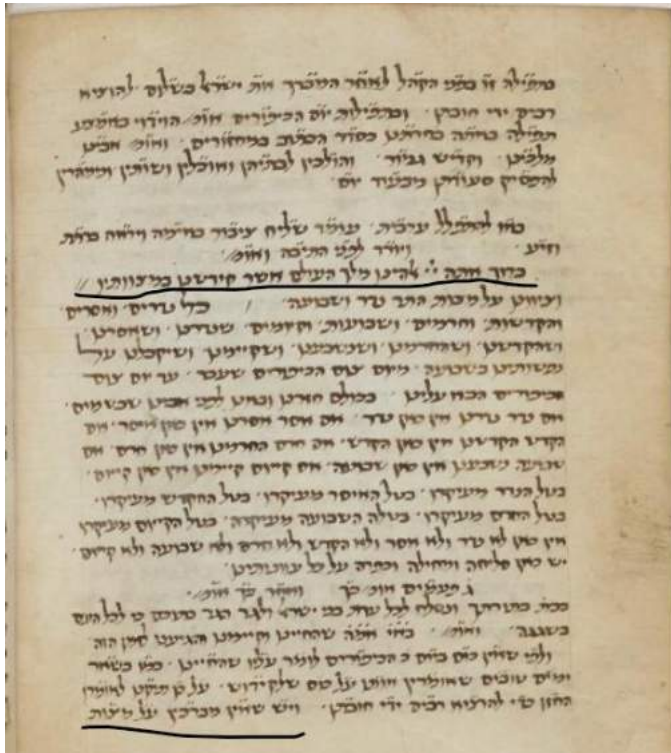 בתפילה זו בפני הקהל לאחר המברך את ישראל בשלום להוציא
רבים ידי חובתן · ובתפילות יום הכיפורים אומ׳ הוידוי באמצע
תפילה ברכה כסדר הכתוב במחזורים · ואומ׳ אבינו
מלכינו · וקדיש גמור · והולכין לבתיהן ואוכלין ושותין וממהרין
להפסיק סעודתן מבעוד יום
באו להתפלל ערבית · עומד שליח ציבור באימה ויראה ברתת
וזיע · ויורד לפני התיבה ואומ׳
ברוך אתה יי׳ אלהינו מלך העולם אשר קידשנו במצוותיו
וציונו על מצות התר נדר ושבועה · כל נדרים ואסרים
והקדשות וחרמים · ושבועות · וקיומים · שנדרנו · ושאסרנו
ושהקדשנו · ושהחרמנו · ושנשבענו · ושקיימנו · ושקיבלנו על
נפשותינו בשבועה · מיום צום הכיפורים שעבר · עד יום צום
הכיפורים הבא עלינו · בכולם חזרנו ובאנו לפני אבינו שבשמים ·
אם נדר נדרנו אין כאן נדר · אם אסר אסרנו אין כאן איסר · אם
הקדש הקדשנו אין כאן הקדש · אם חרם החרמנו אין כאן חרם · אם
שבועה נשבענו אין כאן שבועה · אם קיום קיימנו אין כאן קיום ·
בטל הנדר מעיקרו · בטל האיסר מעיקרו · בטל ההקדש מעיקרו ·
בטל החרם מעיקרו · בטלה השבועה מעיקרה · בטל הקיום מעיקרו
אין כאן לא נדר ולא אסר ולא הקדש ולא חרם ולא שבועה ולא קיום
יש כאן סליחה ומחילה וכפרה על כל עוונותינו
ג׳ פעמים אומ׳ כך ואחר כך אומ׳
ככת׳ בתורתך ונסלח לכל עדת בני ישראל ולגר הגר בתוכם כי לכל העם
בשגגה · ואומ׳ · ברוך אתה שהחיינו וקיימנו והגיענו לזמן הזה
ולפי שאין כוס ביום הכיפורים לומר עליו שהחיינו · כמו בשאר
ימים טובים שאומרין אותו על כוס שלקידוש · על כן תקנו לאומרו
החזן כדי להוציא רבים ידי חובתן · ויש שאין מברכין על מצות